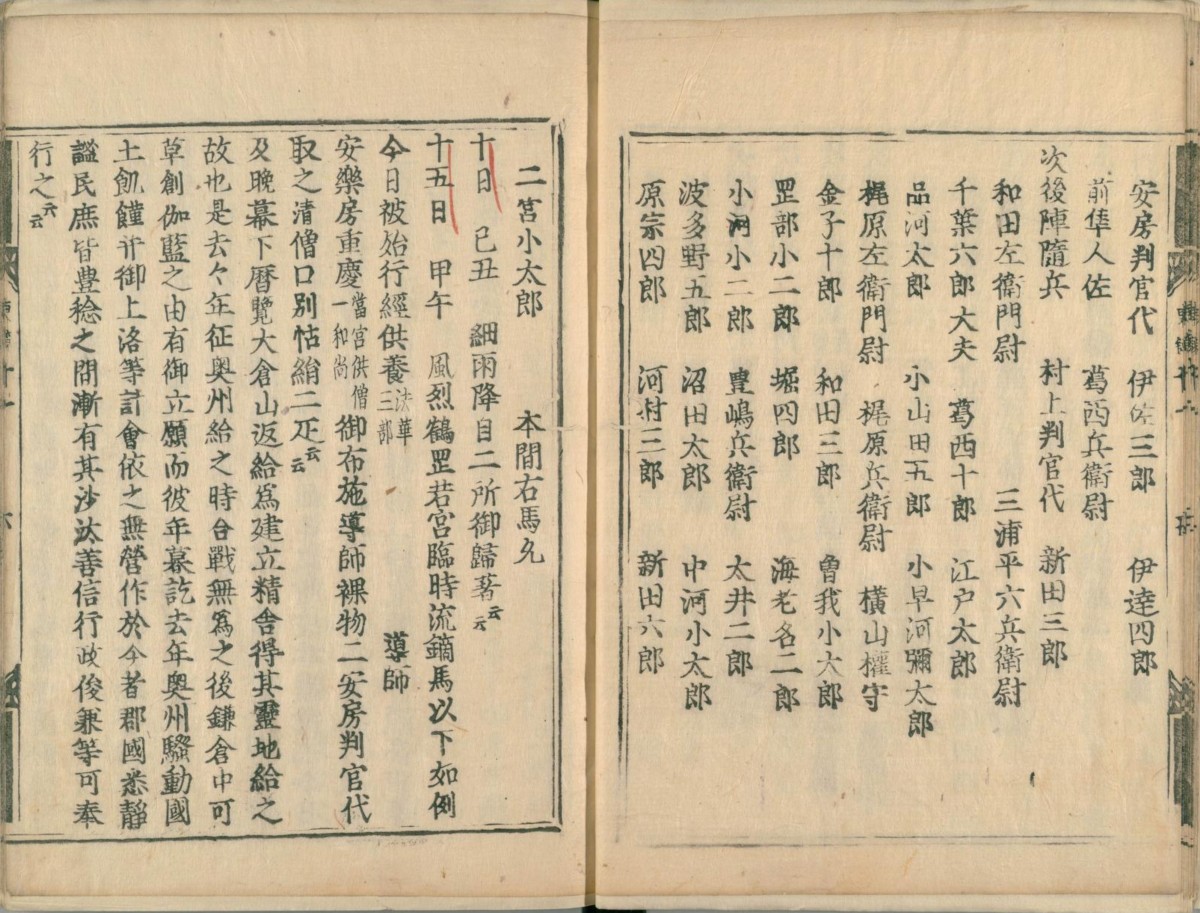 安房判官代　伊佐三郎　伊逹四郎
前隼人佐　葛西兵衛尉
次後陣隨兵　村上判官代　新田三郎
和田左衛門尉　三浦平六兵衛尉
千葉六郎大夫　葛西十郎　江戸太郎
品河太郎　小山田五郎　小早河彌太郎
梶原左衛門尉　梶原兵衛尉　横山權守
金子十郎　和田三郎　曽我小太郎
罡部小二郎　堀四郎　海老名二郎
小河小二郎　豊嶋兵衛尉　太井二郎
波多野五郎　沼田太郎　中河小太郎
原宗四郎　河村三郎　新田六郎
二宮小太郎　本間右馬允
十日　己丑　細雨降自二所御歸著云云
十五日　甲午　風烈鶴罡若宮臨時流鏑馬以下如例
今日被始行經供養法華三部　導師
安樂房重慶當宮供僧一和尚　御布施導師裸物二安房判官代
取之清僧口別帖絹二疋云云
及晩幕下曆覽大倉山返給為建立精舎得其靈地給之
故也是去々年征奥州給之時合戰無為之後鎌倉中可
草創伽藍之由有御立願而彼年暮訖去年奥州騒動國
土飢饉并御上洛等計會依之無營作於今者郡國悉靜
謐民庶皆豊稔之間漸有其沙汰善信行政俊兼等可奉
行之云云